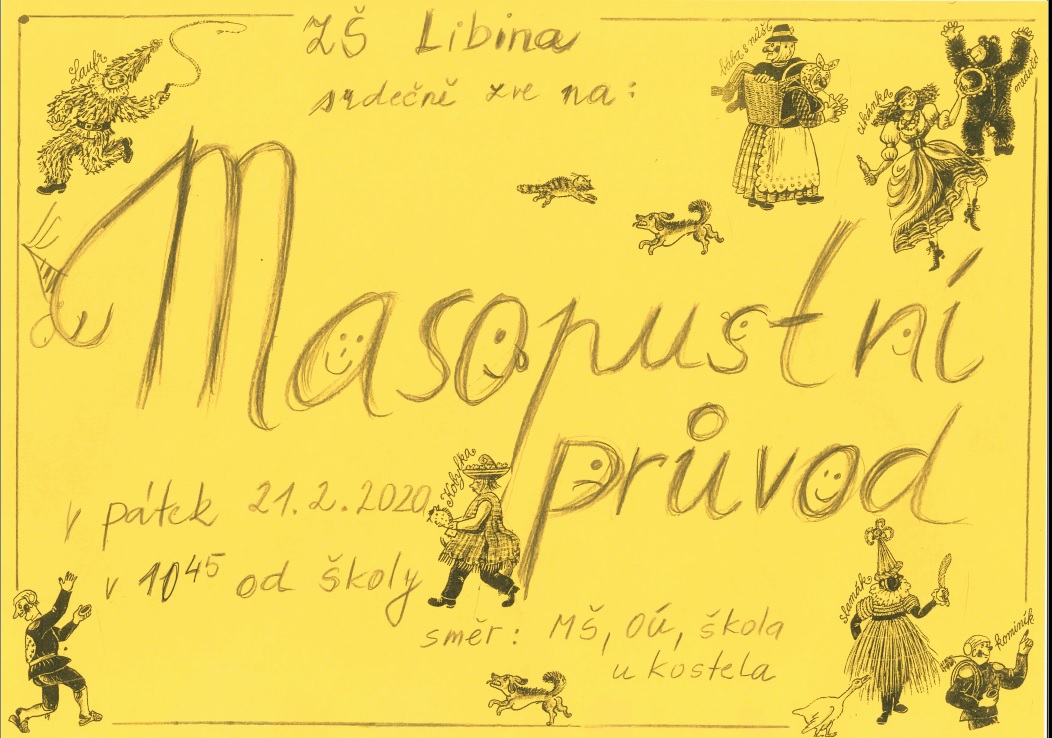 ZŠ Libina
srdečně zve na:
Laufr
bába s nůší
cikánka
medvěd
Masopustní
průvod
Kobylka
v pátek 21.2.2020
v 10⁴⁵ od školy
směr: MŠ, OÚ, škola
u kostela
slamák
kominík